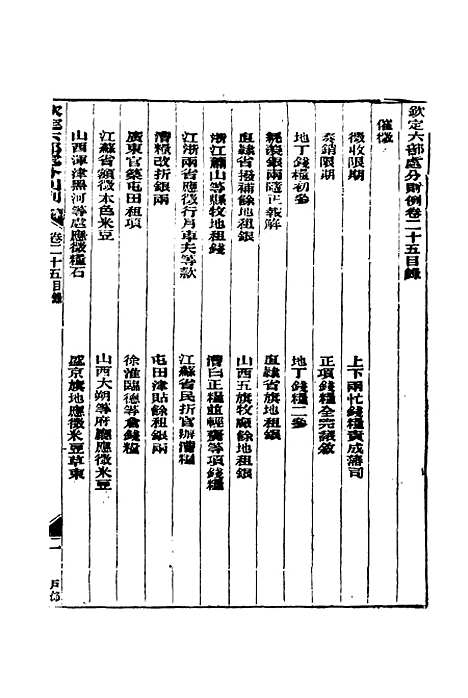 欽定六部處分則例卷二十五目錄
催徵
徵收限期
上下兩忙錢糧責成藩司
奏銷限期
正項錢糧全完議敘
地丁錢糧初參
地丁錢糧二參
耗羨銀兩隨正報解
直隸省旗地租銀
直隸省撥補餘地租銀
山西五旗牧廠餘地租銀
浙江蕭山等縣牧地租錢
漕白正糧並輕齎等項錢糧
江浙兩省應徵行月車夫等款
江蘇省民折官辦漕糧
漕糧改折銀兩
屯田津貼餘租銀兩
廣東官築屯田租項
徐淮臨德等倉錢糧
江蘇省額徵本色米豆
山西大朔等府廳應徵米豆
山西渾津黑河等處應徵糧石
盛京旗地應徵米豆草束
欽定六部處分則例
卷二十五目錄
一
戶部